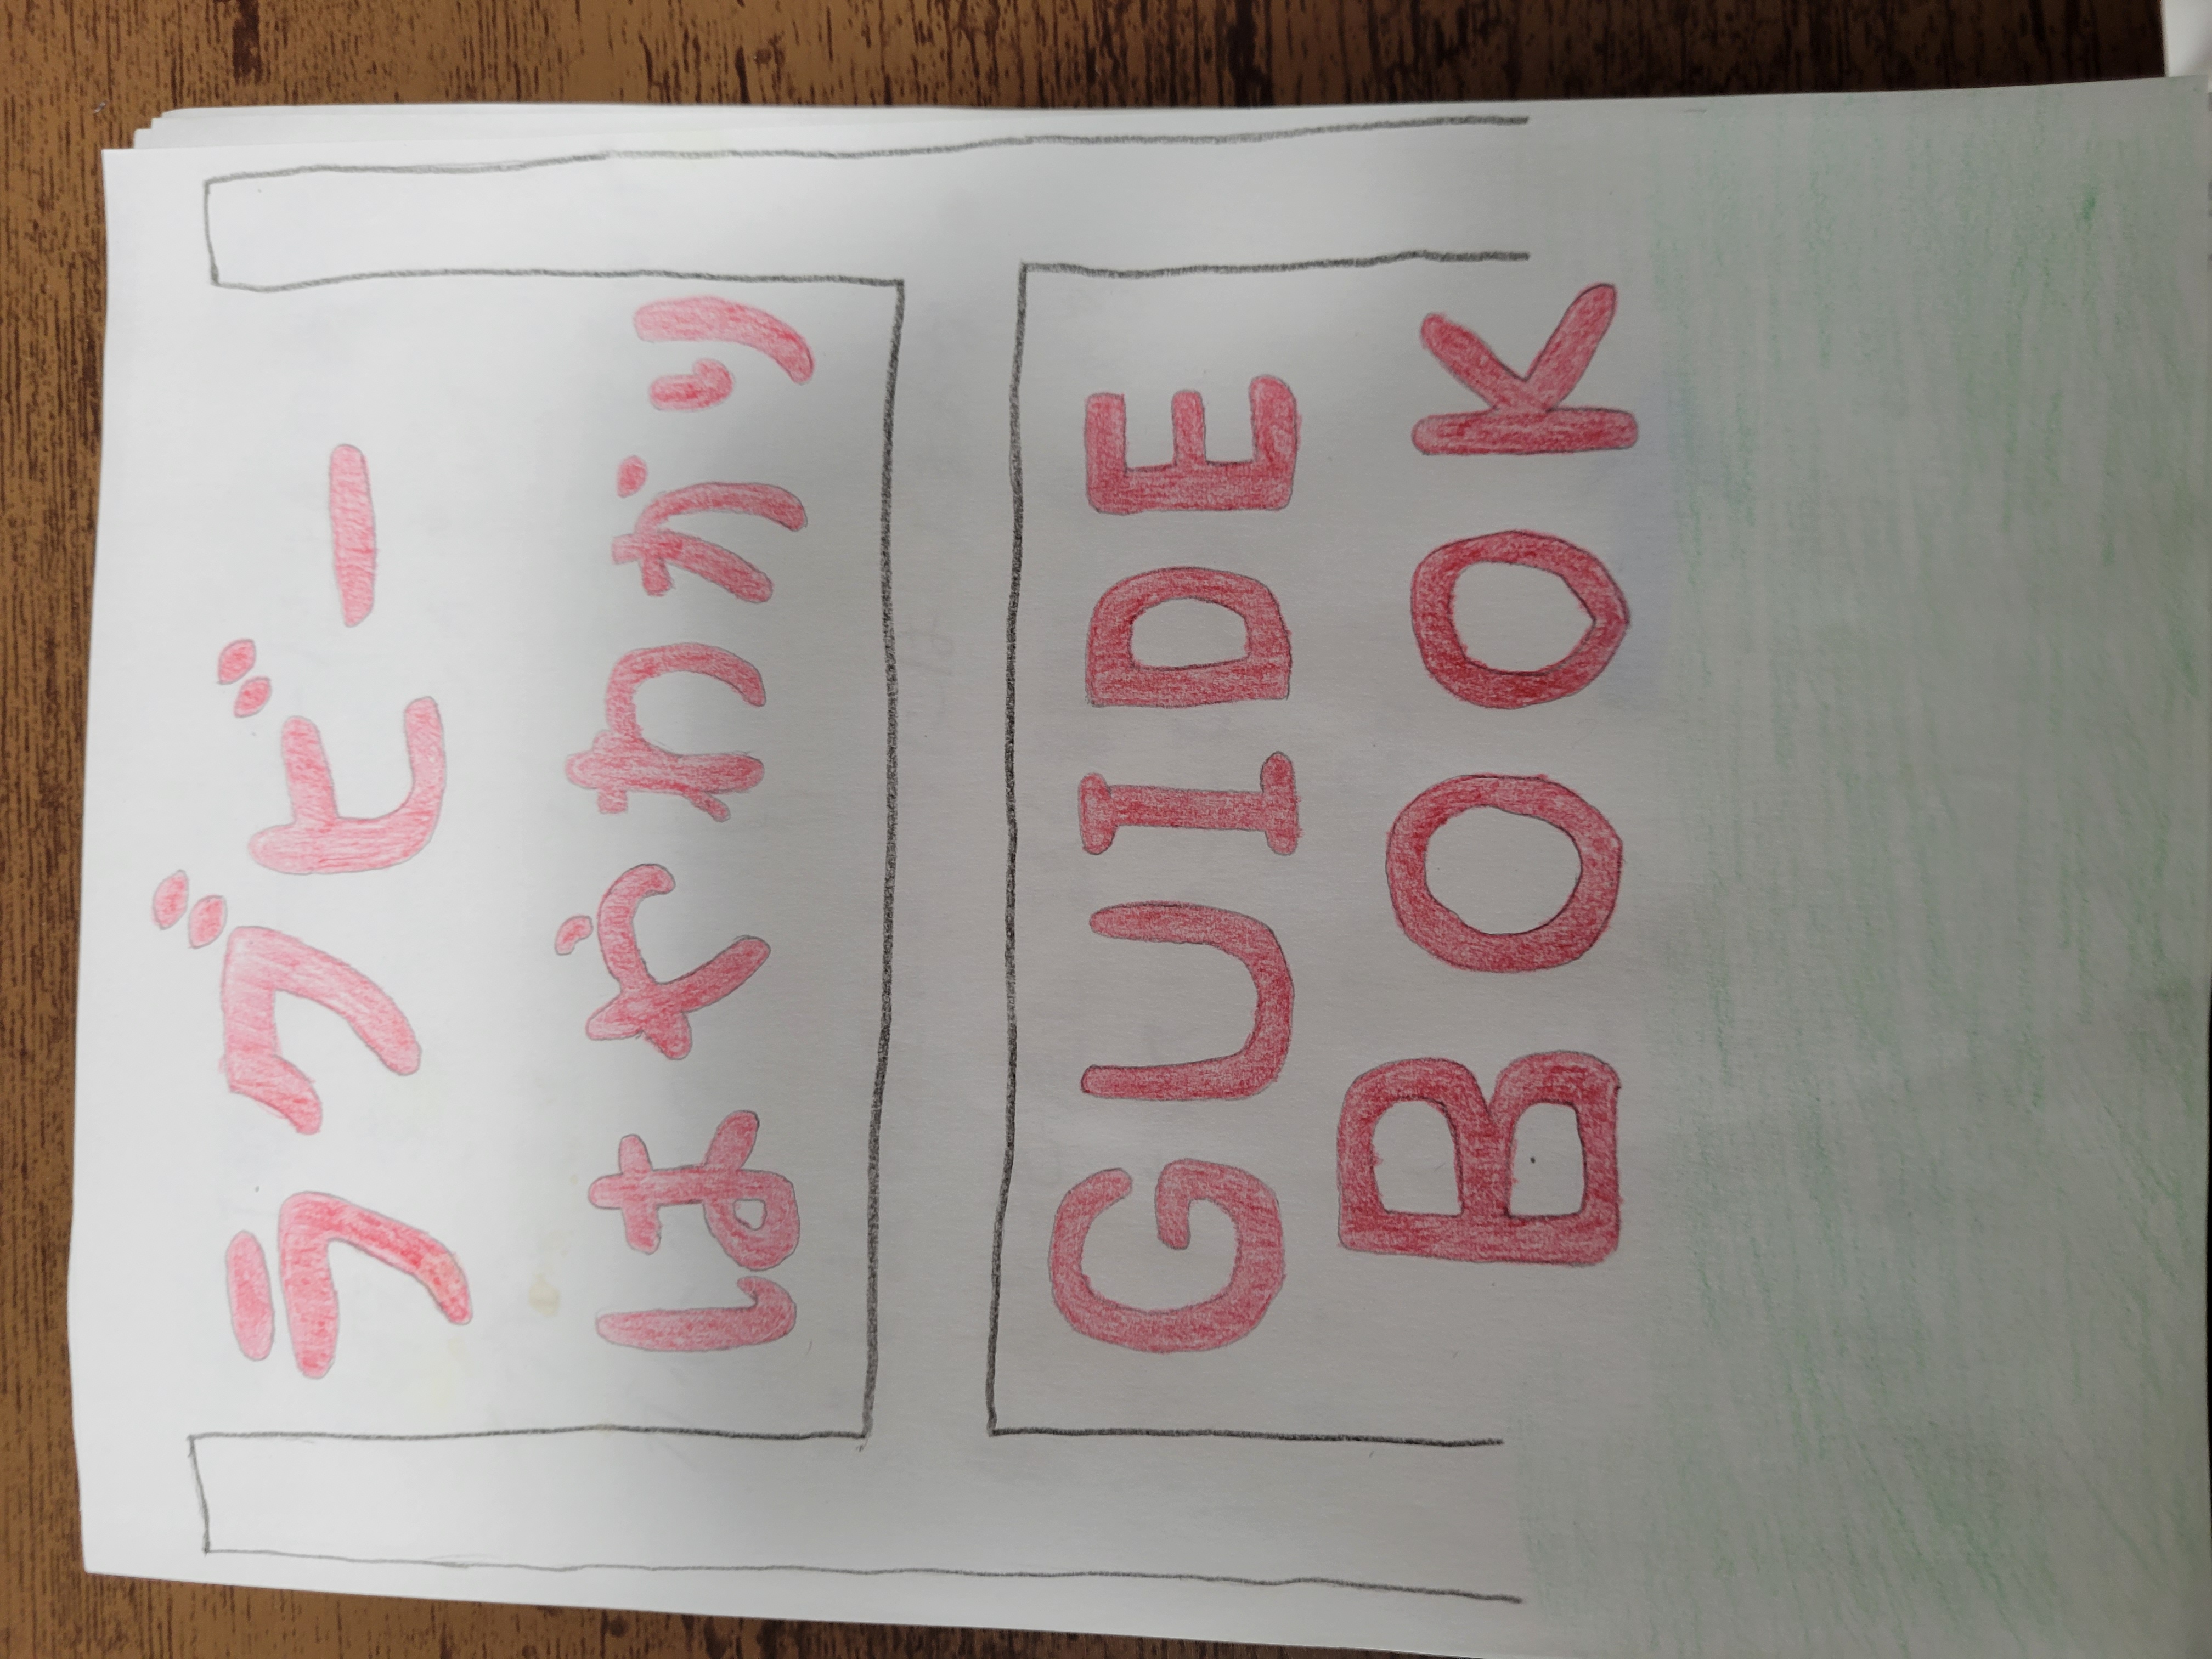 ラグビー
はやわかり
GUIDE
BOOK